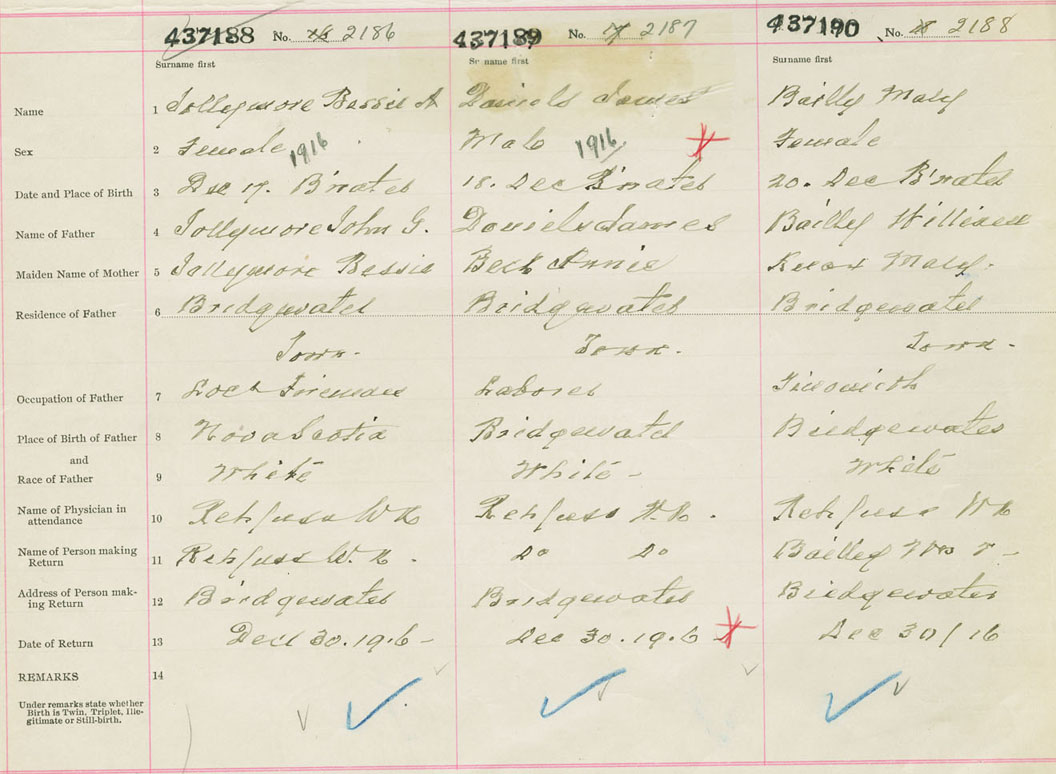 437188 No. 16 2186 437189 No. 17 2187 437190 No. 18 2188
Surname first Surname first Surname first
Name 1 Jollymore Bessie A Daniels James Bailly Mary
Sex 2 Female 1916 Male 1916 Female
Date and Place of Birth 3 Dec 17. B'water 18. Dec B'water 20. Dec B'water
Name of Father 4 Jollymore John G. Daniels James Bailly William
Maiden Name of Mother 5 Jollymore Bessie Beck Annie Knox Mary.
Residence of Father 6 Bridgewater Bridgewater Bridgewater
Town. Town. Town.
Occupation of Father 7 Foreman Laborer
Place of Birth of Father 8 Nova Scotia Bridgewater Bridgewater
and
Race of Father 9 White White - White
Name of Physician in
attendance 10 Rehfuss W N Rehfuss W. N. Rehfuss W N
Name of Person making
Return 11 Rehfuss W. N. Do Do Bailley Wm T -
Address of Person mak-
ing Return 12 Bridgewater Bridgewater Bridgewater
Date of Return 13 Dec 30. 1916 - Dec 30. 1916 Dec 30/16
REMARKS 14
Under remarks state whether
Birth is Twin, Triplet, Ille-
gitimate or Still-birth.